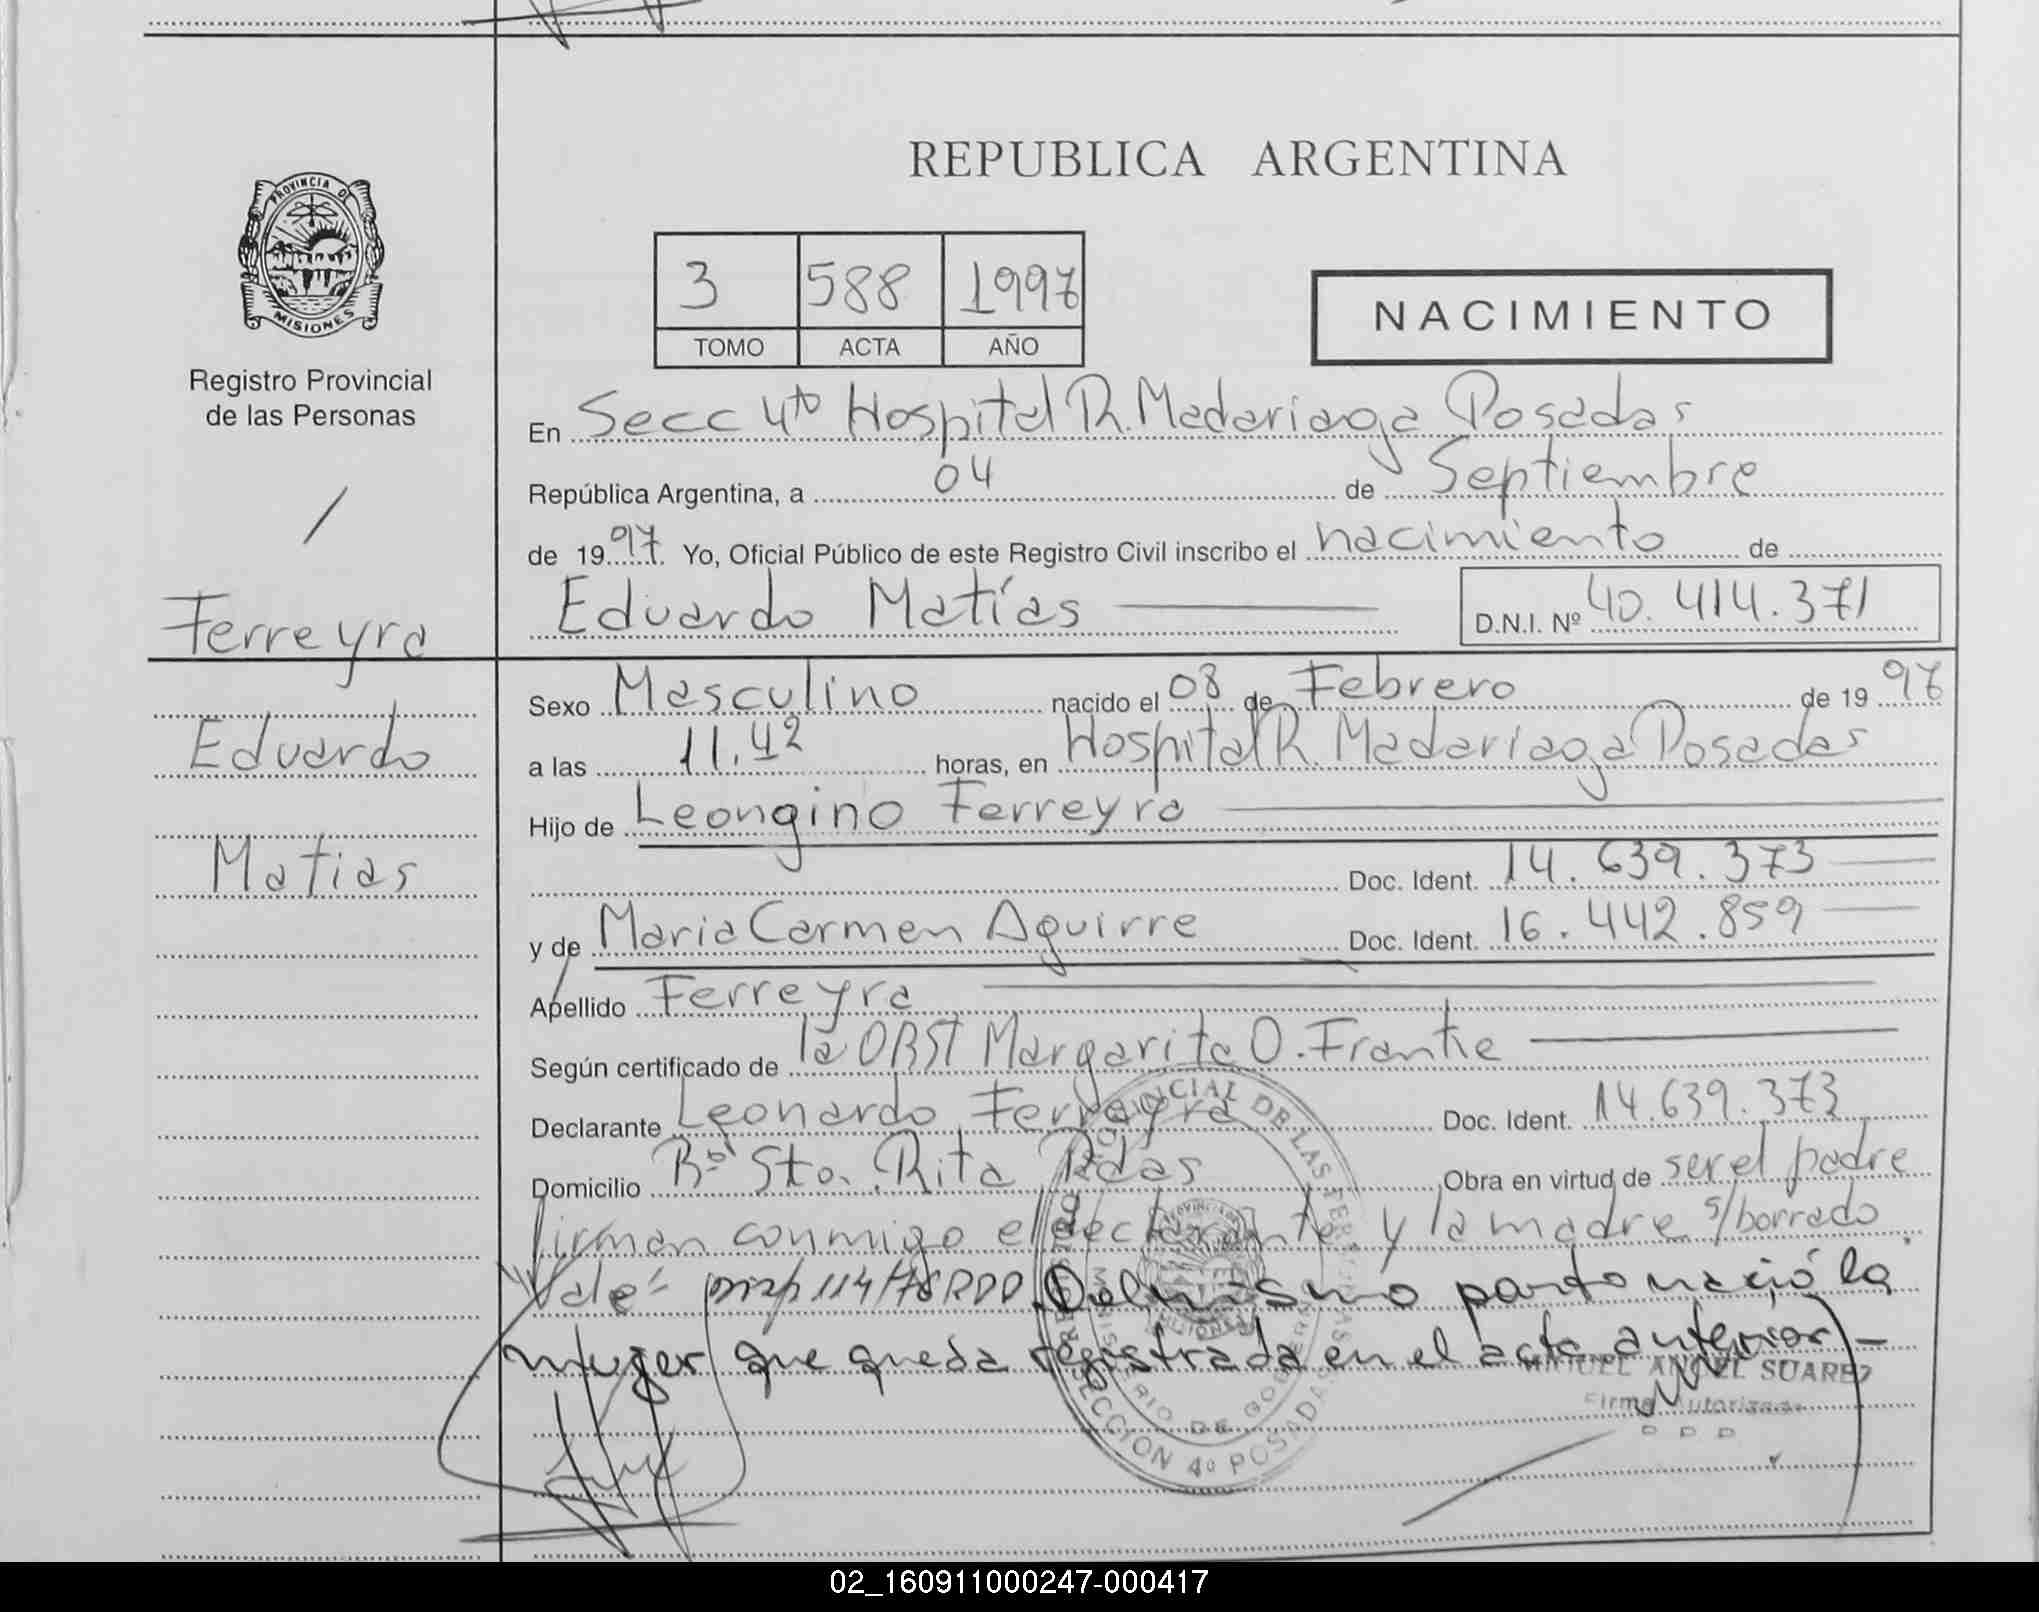 REPUBLICA ARGENTINA
PROVINCIA DE
MISIONES
3 588 1997
TOMO ACTA AÑO
NACIMIENTO
Registro Provincial
de las Personas
En Secc 4ta Hospital R. Madariaga Posadas
República Argentina, a 04 de Septiembre
de 1997. Yo, Oficial Público de este Registro Civil inscribo el nacimiento de
Eduardo Matías D.N.I. Nº 40.414.371
Ferreyra
Eduardo
Matias
Sexo Masculino nacido el 08 de Febrero de 1997
a las 11.42 horas, en Hospital R. Madariaga Posadas
Hijo de Leongino Ferreyra
Doc. Ident. 14.639.373
y de Maria Carmen Aguirre Doc. Ident. 16.442.859
Apellido Ferreyra
Según certificado de la OBST Margarita O. Frantie
Declarante Leonardo Ferreyra Doc. Ident. 14.639.373
Domicilio Bº Sta. Rita Pdas Obra en virtud de ser el padre
firman conmigo el declarante y la madre s/borrado
Vale- disp 114/78 RDD. Del mismo parto nació la
mujer que queda registrada en el acta anterior-
MIGUEL ANGEL SUAREZ
Firma Autorizada
SECCION 4º POSADAS
MINISTERIO DE GOBIERNO
02_160911000247-000417